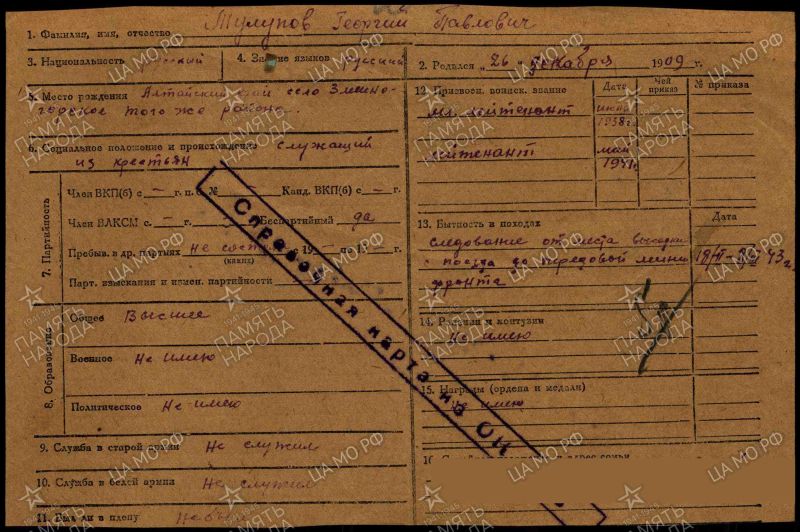 1. Фамилия, имя, отчество Тулупов Георгий Павлович
3. Национальность русский
4. Знание языков русский
2. Родился "26" декабря 1909 г.
5. Место рождения Алтайский край село Змеино-
горское того же района.
6. Социальное положение и происхождение служащий
из крестьян
7. Партийность
Член ВКП(б) с — г. п. № — Канд. ВКП(б) с — г.
Член ВЛКСМ с — г. Беспартийный да
Пребыв. в др. партиях не состоял с 19 — по 1 — г.
(каких)
Парт. взыскания и измен. партийности
8. Образование
Общее Высшее
Военное Не имею
Политическое Не имею
9. Служба в старой армии Не служил
10. Служба в белой армии Не служил
11. Был ли в плену Не был
12. Присвоен. воинск. звание
Дата
Чей приказ
№ приказа
мл. лейтенант июнь 1938 г.
лейтенант май
13. Бытность в походах
Дата
следование от места высадки
с поезда до передовой линии
фронта
14. Ранения и контузии
Не имею
15. Награды (ордена и медали)
Не имею
Справочная карта на ОП
ЦА МО РФ
ПАМЯТЬ НАРОДА
1941-1945